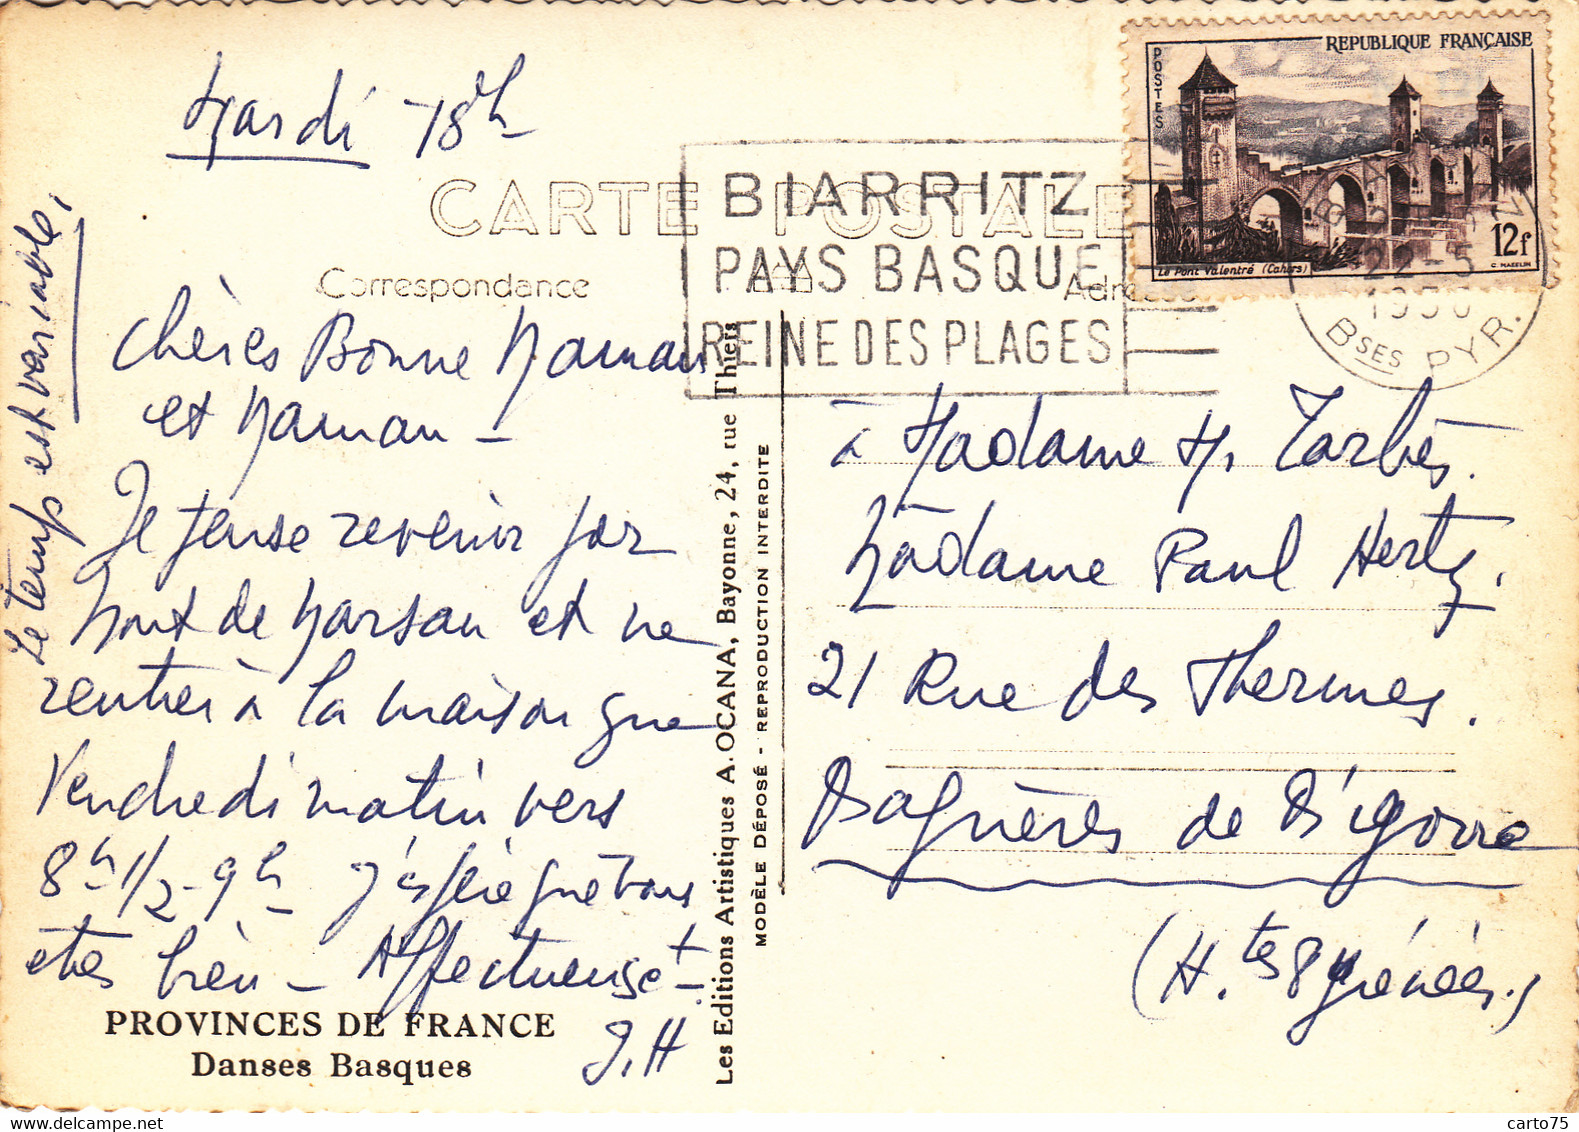 Mardi 18h
CARTE POSTALE
Correspondance
Adresse
BIARRITZ
PAYS BASQUE
REINE DES PLAGES
REPUBLIQUE FRANÇAISE
POSTES
12f
Le Pont Valentré (Cahors)
C. MAZELIN
22-5
1956
BSES PYR.
Chères Bonne Maman
et Maman –
Je pense revenir par
Mont de Marsan et ne
rentrer à la maison que
Vendredi matin vers
8h 1/2 - 9h – J'espère que vous
êtes bien – Affectueuset –
J.H
Le temps est variable,
PROVINCES DE FRANCE
Danses Basques
Les Editions Artistiques A. OCANA, Bayonne, 24, rue Thiers
MODÈLE DÉPOSÉ - REPRODUCTION INTERDITE
à Madame M. Tarbès.
Madame Paul Hertz.
21 Rue des Thermes.
Bagnères de Bigorre
(H.tes Pyrénées.)
delcampe.net
carto75